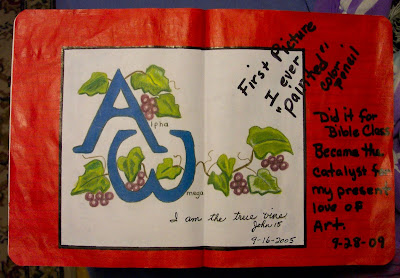 First Picture
I ever
"painted"
color pencil
Alpha
Omega
I am the true vine
John 15
9-16-2005
Did it for
Bible Class
Became the
catalyst for
my present
love of
Art.
9-28-09